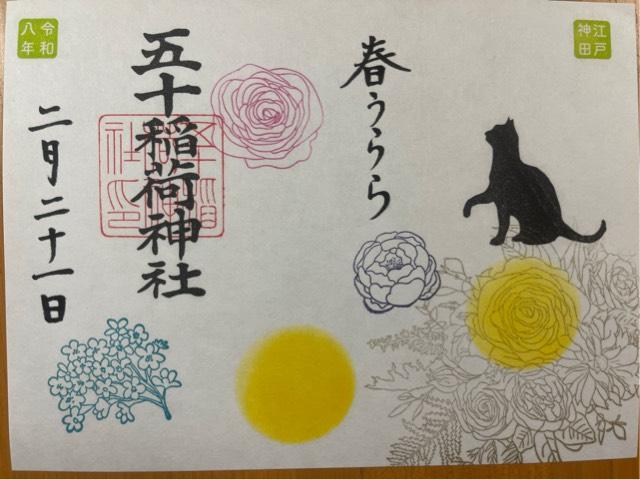 江戸
神田
春うらら
五十稲荷神社
二月二十一日
令和
八年